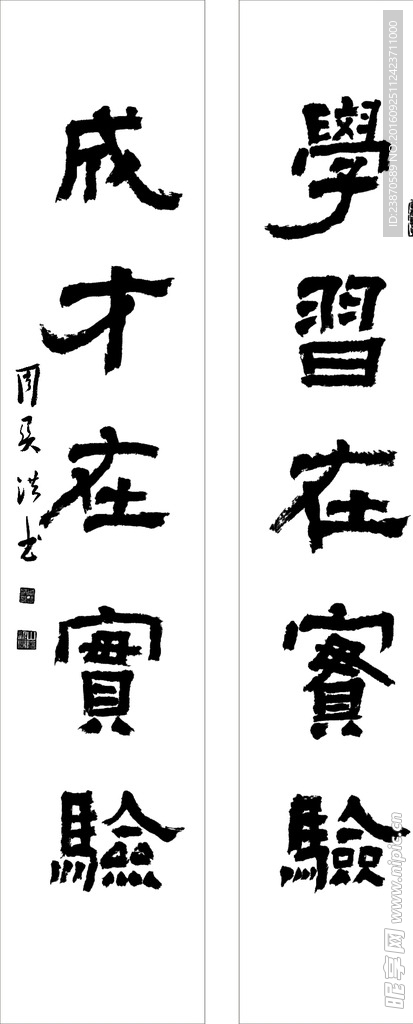 學習在實驗
成才在實驗
周吴洪书
ID:23870589 NO:20160925112423711000
昵享网 www.nipic.cn